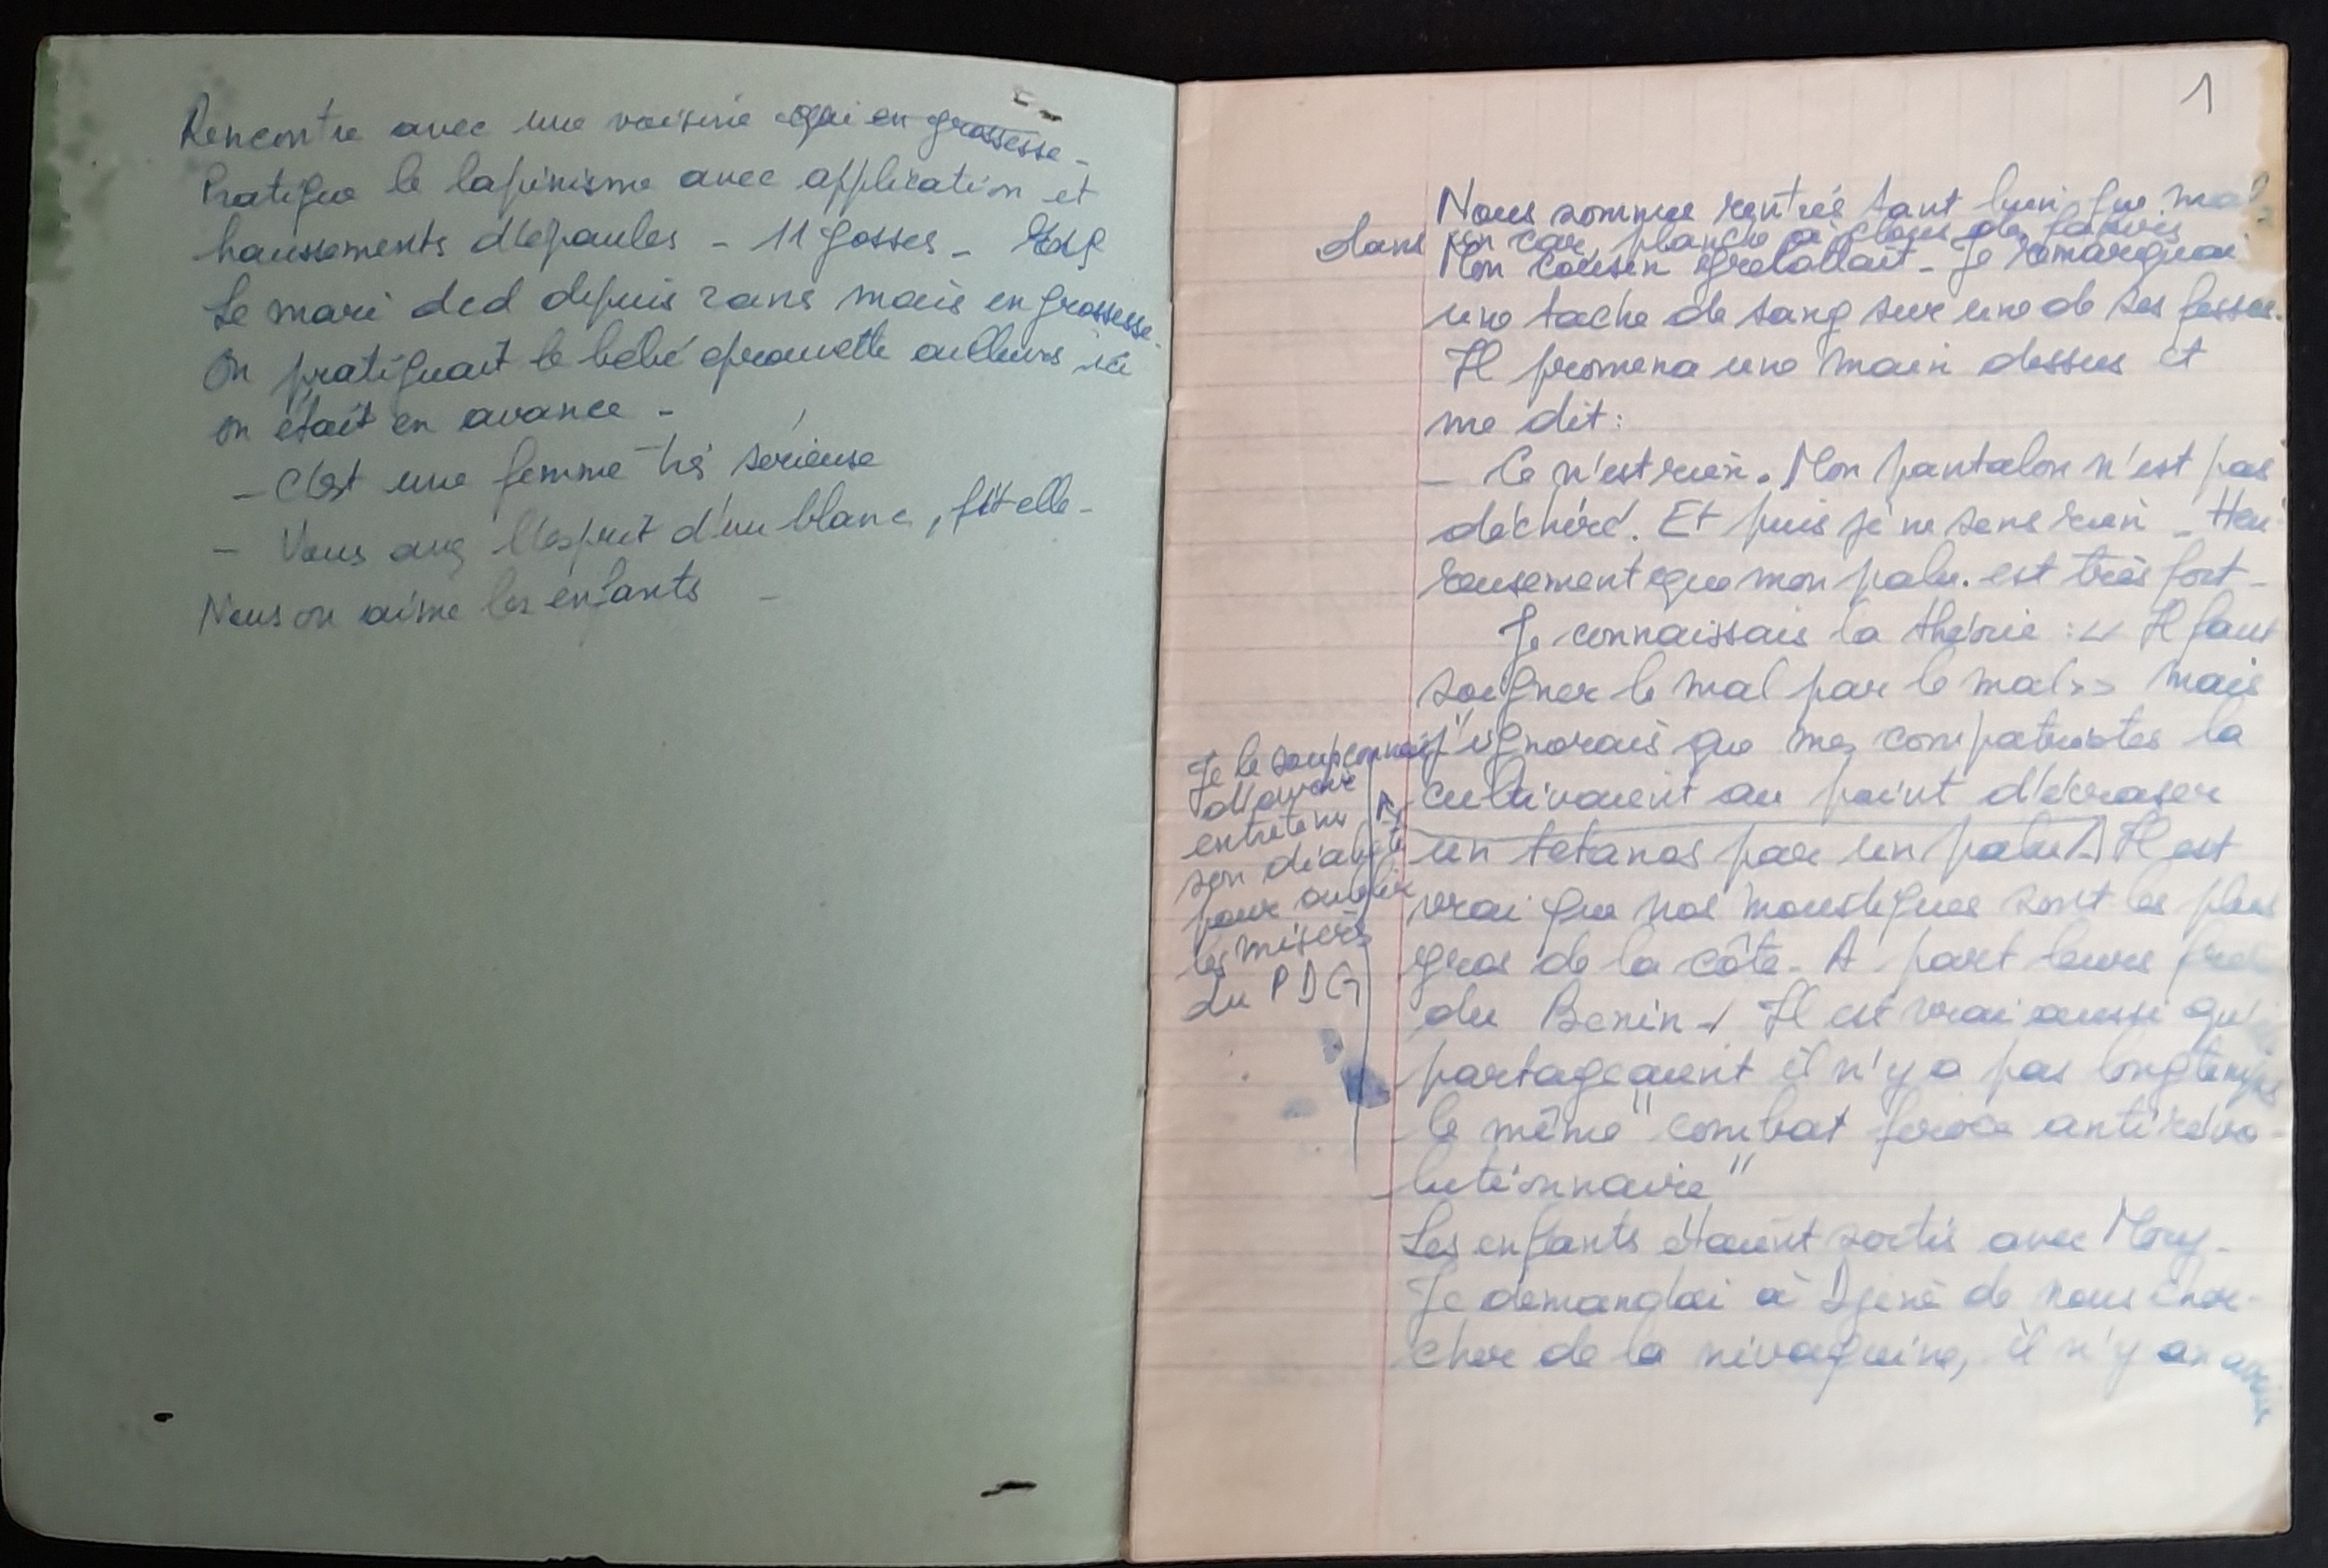 Rencontre avec une voisine qui en grossesse -
Pratique le lapinisme avec application et
haussements d'épaules - 11 gosses -
Le mari dcd depuis 2 ans mais en grossesse.
On pratiquait le bébé éprouvette ailleurs ici
on était en avance -
- C'est une femme très sérieuse
- Vous avez l'esprit d'un blanc, fit elle -
Nous on aime les enfants -
1
Nous sommes rentrés tant bien que mal
dans un car, planche à clous de fakirs
Mon cousin grelottait - Je remarquai
une tache de sang sur une de ses fesses.
Il promena une main dessus et
me dit :
- Ce n'est rien. Mon pantalon n'est pas
déchiré. Et puis je ne sens rien - Heu
reusement que mon palu. est très fort -
Je connaissais la théorie : << Il faut
soigner le mal par le mal >> mais
j'ignorais que mes compatriotes la
cultivaient au point d'écraser
un tétanos par un palu. Il est
vrai que nos moustiques sont les plus
gros de la côte - A part leurs
du Benin - Il est vrai aussi qu'
partageaient il n'y a pas longtemps
le même "combat féroce antirévo-
lutionnaire"
Les enfants étaient sortis avec Mory -
Je demandai à Djéné de nous cher-
cher de la nivaquine, il n'y en avait
Je le soupçonnais
d'avoir
entretenu
son diabète
pour oublier
les misères
du PDG